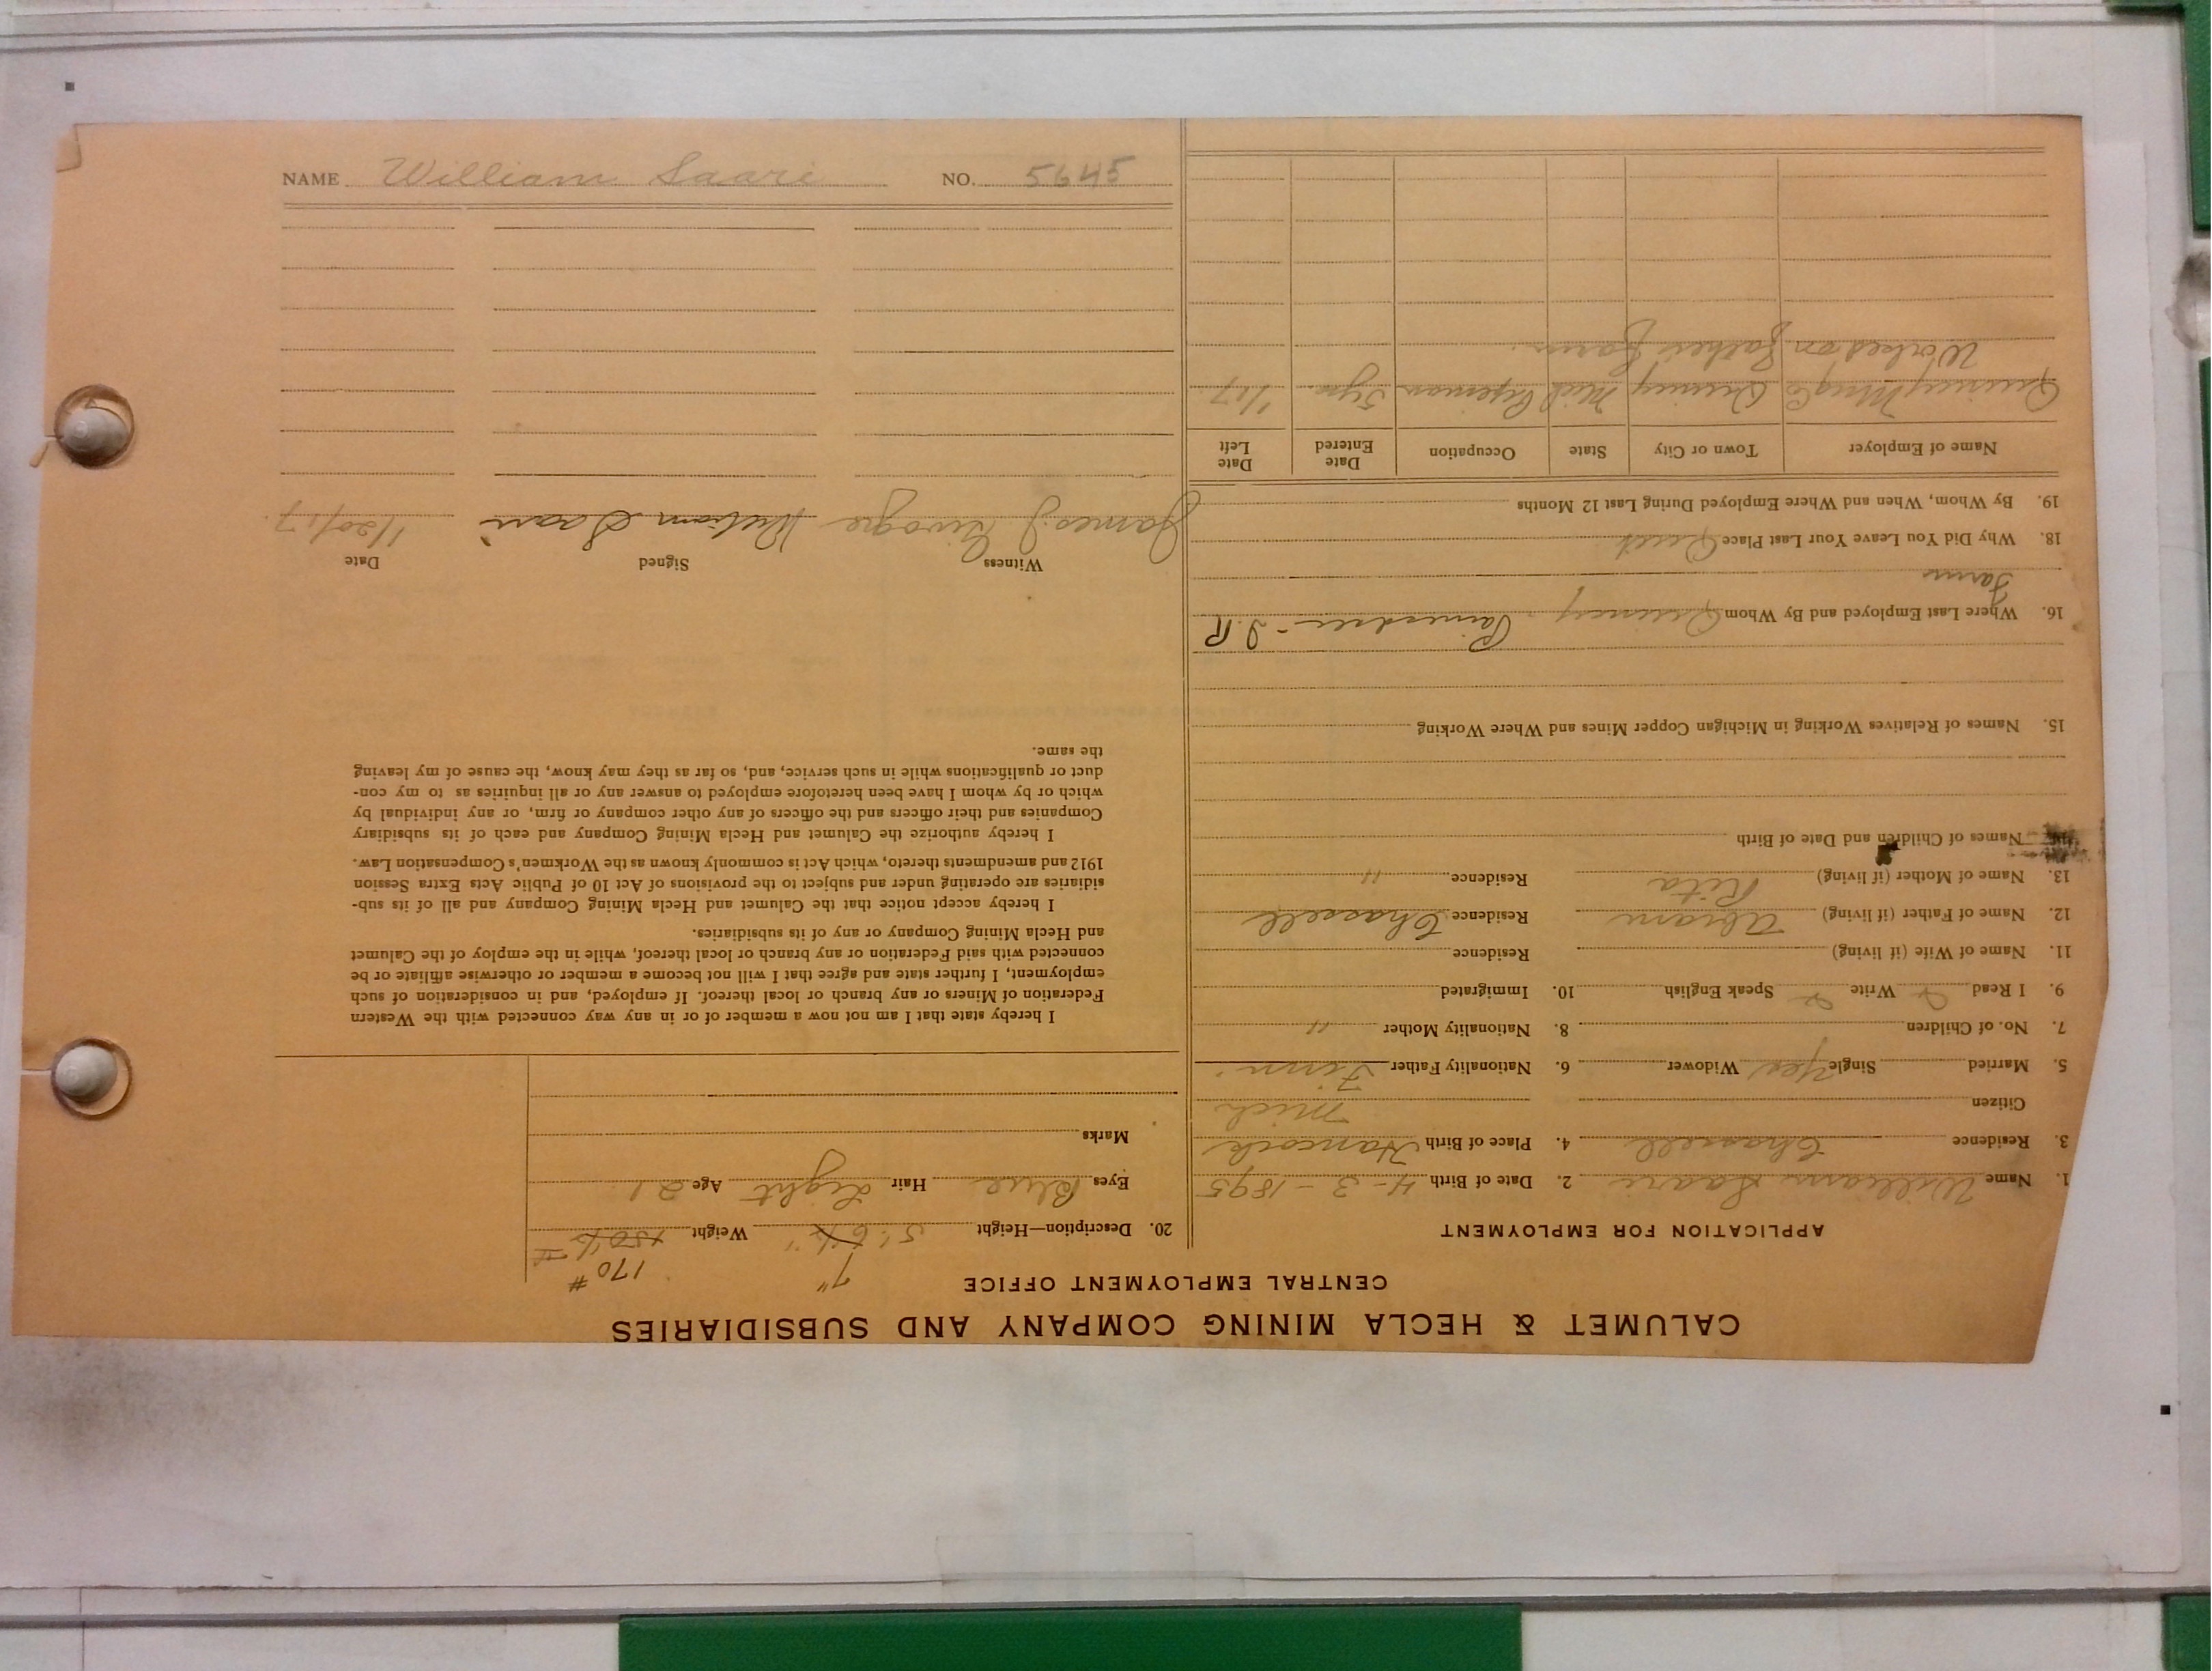 CALUMET & HECLA MINING COMPANY AND SUBSIDIARIES
CENTRAL EMPLOYMENT OFFICE
APPLICATION FOR EMPLOYMENT
1. Name William Saari 2. Date of Birth 4-3-1895
3. Residence Chassell 4. Place of Birth Hancock
Citizen Mich
5. Married Single Yes Widower 6. Nationality Father Finn
7. No. of Children 8. Nationality Mother "
9. I Read Write Speak English 10. Immigrated
11. Name of Wife (if living) Residence
12. Name of Father (if living) Abram Residence Chassell
13. Name of Mother (if living) Rita Residence "
Names of Children and Date of Birth
15. Names of Relatives Working in Michigan Copper Mines and Where Working
16. Where Last Employed and By Whom Quincy - Painesdale - J. R
Farm
18. Why Did You Leave Your Last Place Quit
19. By Whom, When and Where Employed During Last 12 Months
Name of Employer Town or City State Occupation Date Entered Date Left
Quincy Mng Co Quincy Mich Pipeman 3 yrs. 1/17
Worked on Father's Farm.
7" 170 #
20. Description—Height 5' 6½" Weight 150 ½ #
Eyes Blue Hair Light Age 21
Marks
I hereby state that I am not now a member of or in any way connected with the Western
Federation of Miners or any branch or local thereof. If employed, and in consideration of such
employment, I further state and agree that I will not become a member or otherwise affiliate or be
connected with said Federation or any branch or local thereof, while in the employ of the Calumet
and Hecla Mining Company or any of its subsidiaries.
I hereby accept notice that the Calumet and Hecla Mining Company and all of its sub-
sidiaries are operating under and subject to the provisions of Act 10 of Public Acts Extra Session
1912 and amendments thereto, which Act is commonly known as the Workmen's Compensation Law.
I hereby authorize the Calumet and Hecla Mining Company and each of its subsidiary
Companies and their officers and the officers of any other company or firm, or any individual by
which or by whom I have been heretofore employed to answer any or all inquiries as to my con-
duct or qualifications while in such service, and, so far as they may know, the cause of my leaving
the same.
Witness Signed Date
James J. William Saari 1/20/17.
NAME William Saari NO. 5645